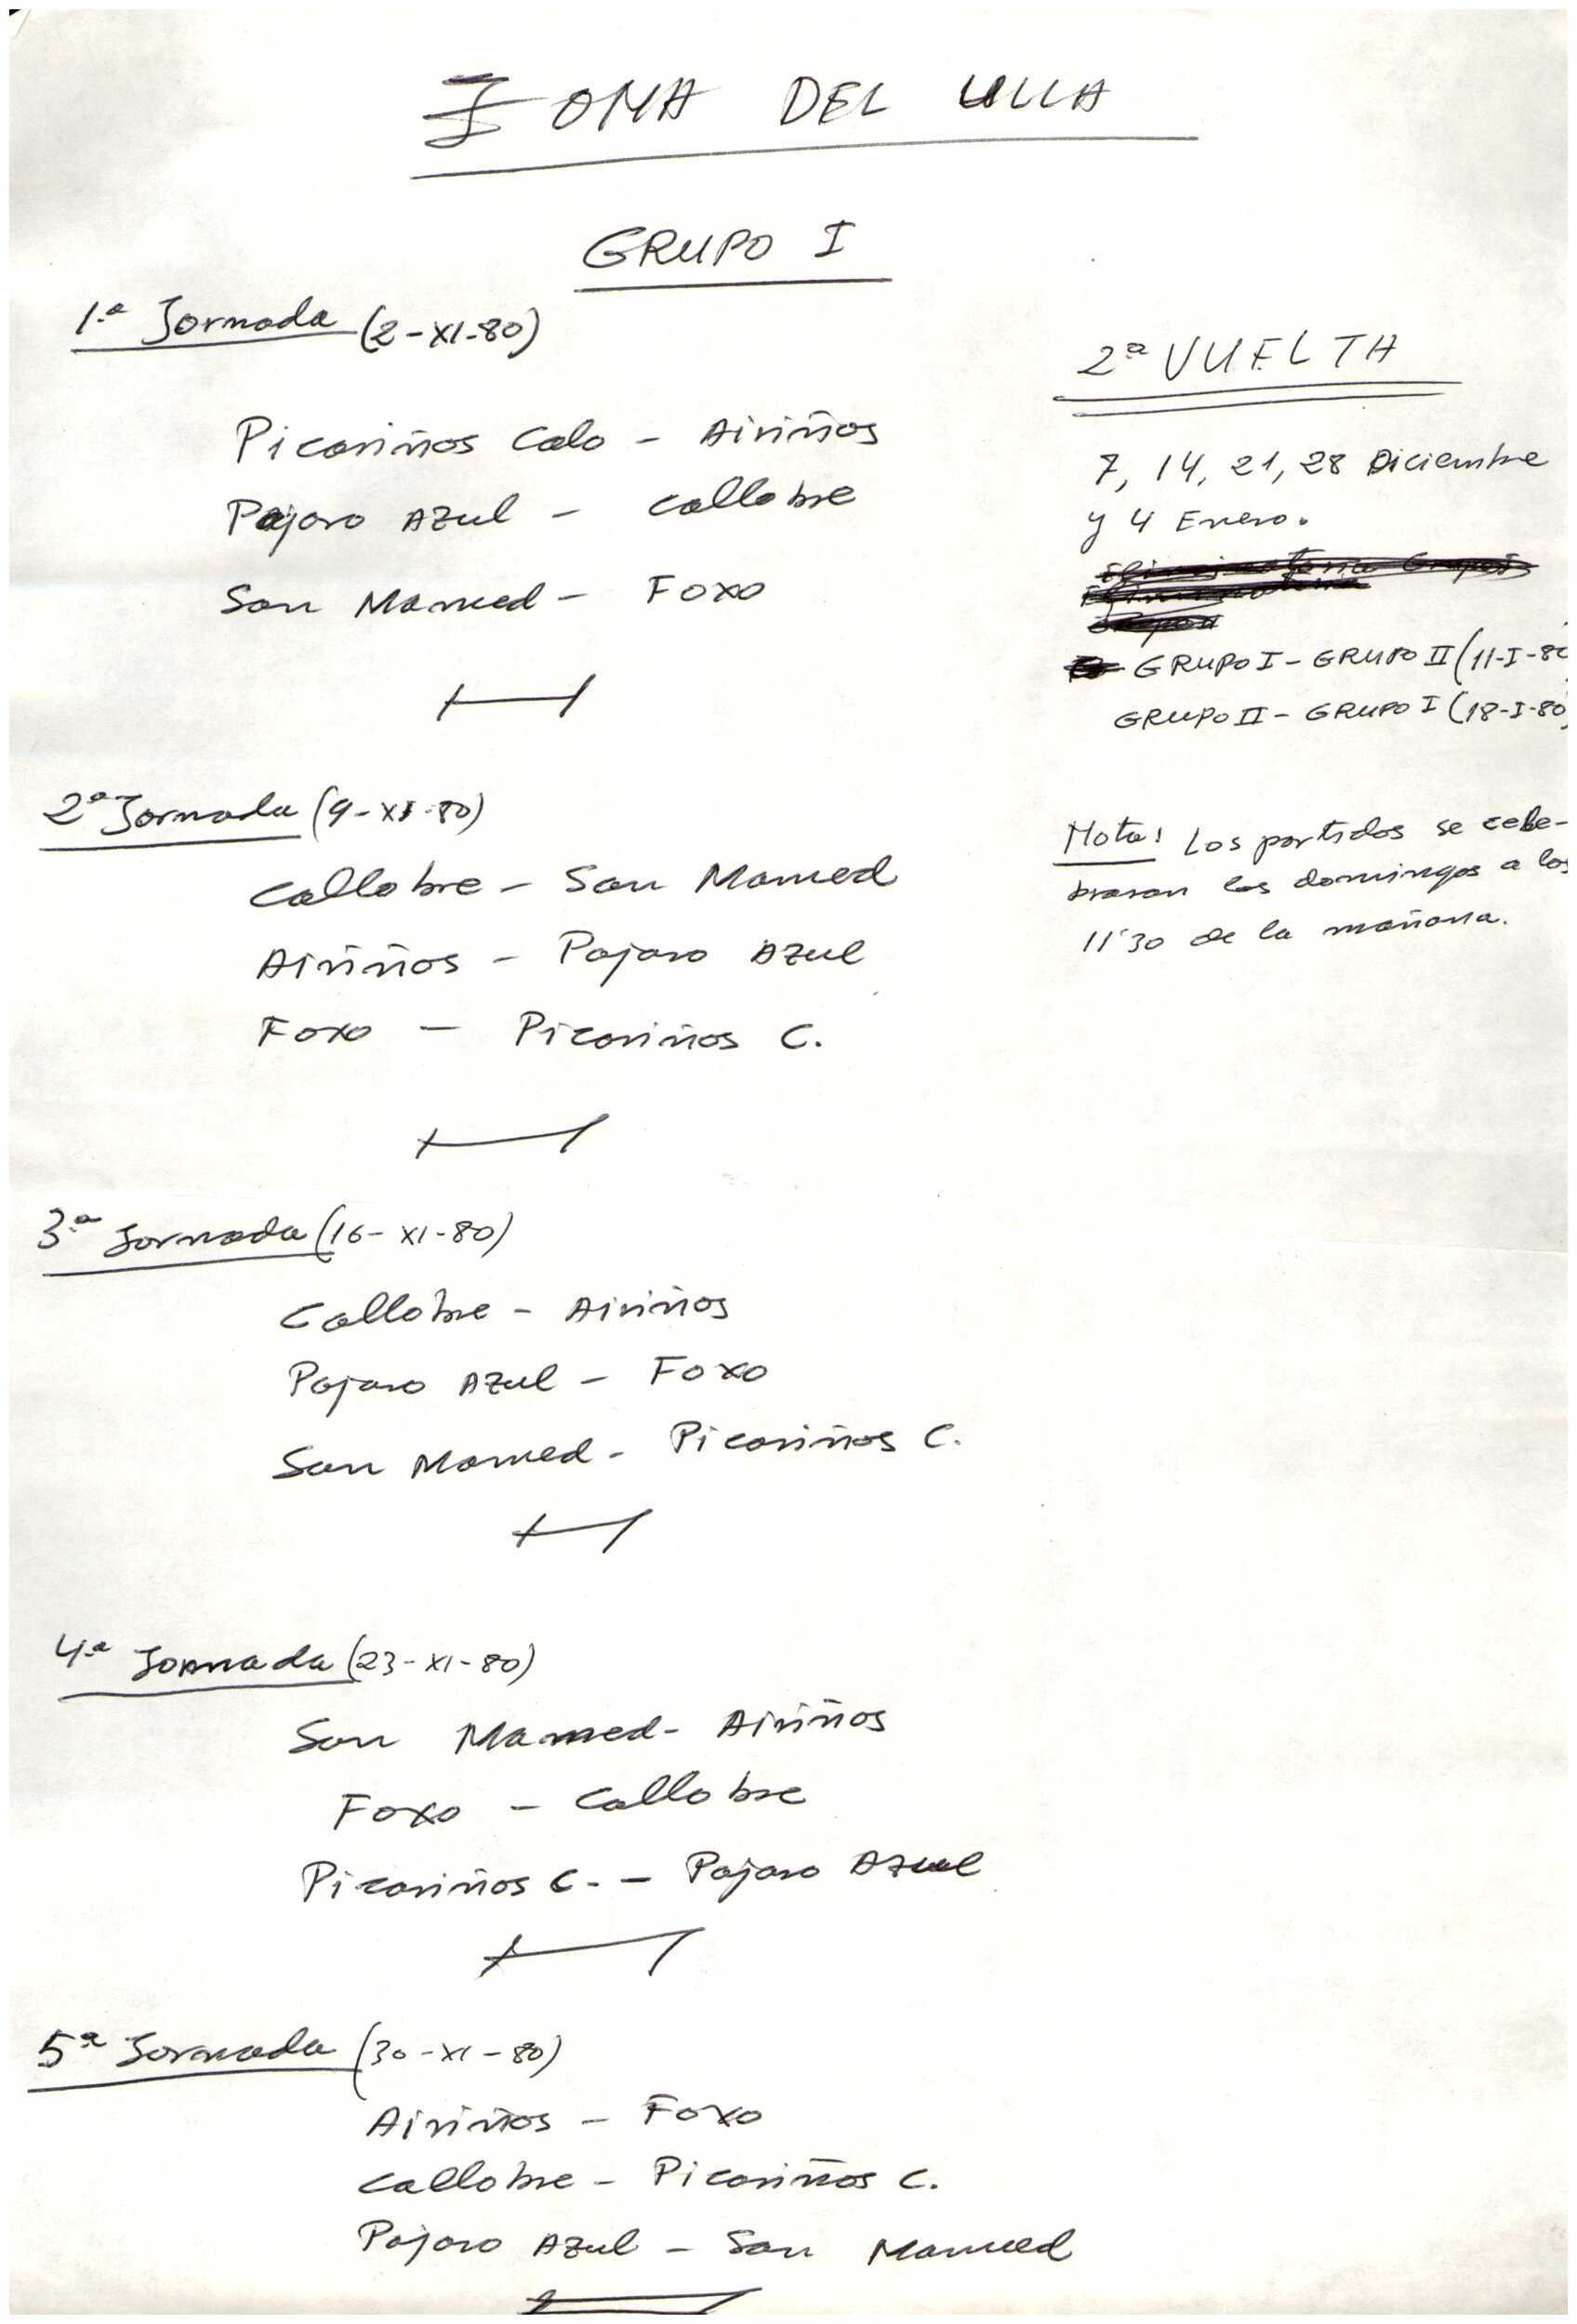 ZONA DEL ULLA
GRUPO I
1.ª Jornada (2-XI-80)
Picariños Calo - Airiños
Pajaro Azul - Callobre
San Mamed - Foxo
2ª Jornada (9-XI-80)
Callobre - San Mamed
Airiños - Pajaro Azul
Foxo - Picariños C.
3.ª Jornada (16-XI-80)
Callobre - Airiños
Pajaro Azul - Foxo
San Mamed - Picariños C.
4.ª Jornada (23-XI-80)
San Mamed - Airiños
Foxo - Callobre
Picariños C. - Pajaro Azul
5ª Jornada (30-XI-80)
Airiños - Foxo
Callobre - Picariños C.
Pajaro Azul - San Mamed
2ª VUELTA
7, 14, 21, 28 Diciembre
y 4 Enero.
GRUPO I - GRUPO II (11-I-80
GRUPO II - GRUPO I (18-I-80)
Nota: Los partidos se cele-
braran los domingos a las
11'30 de la mañana.